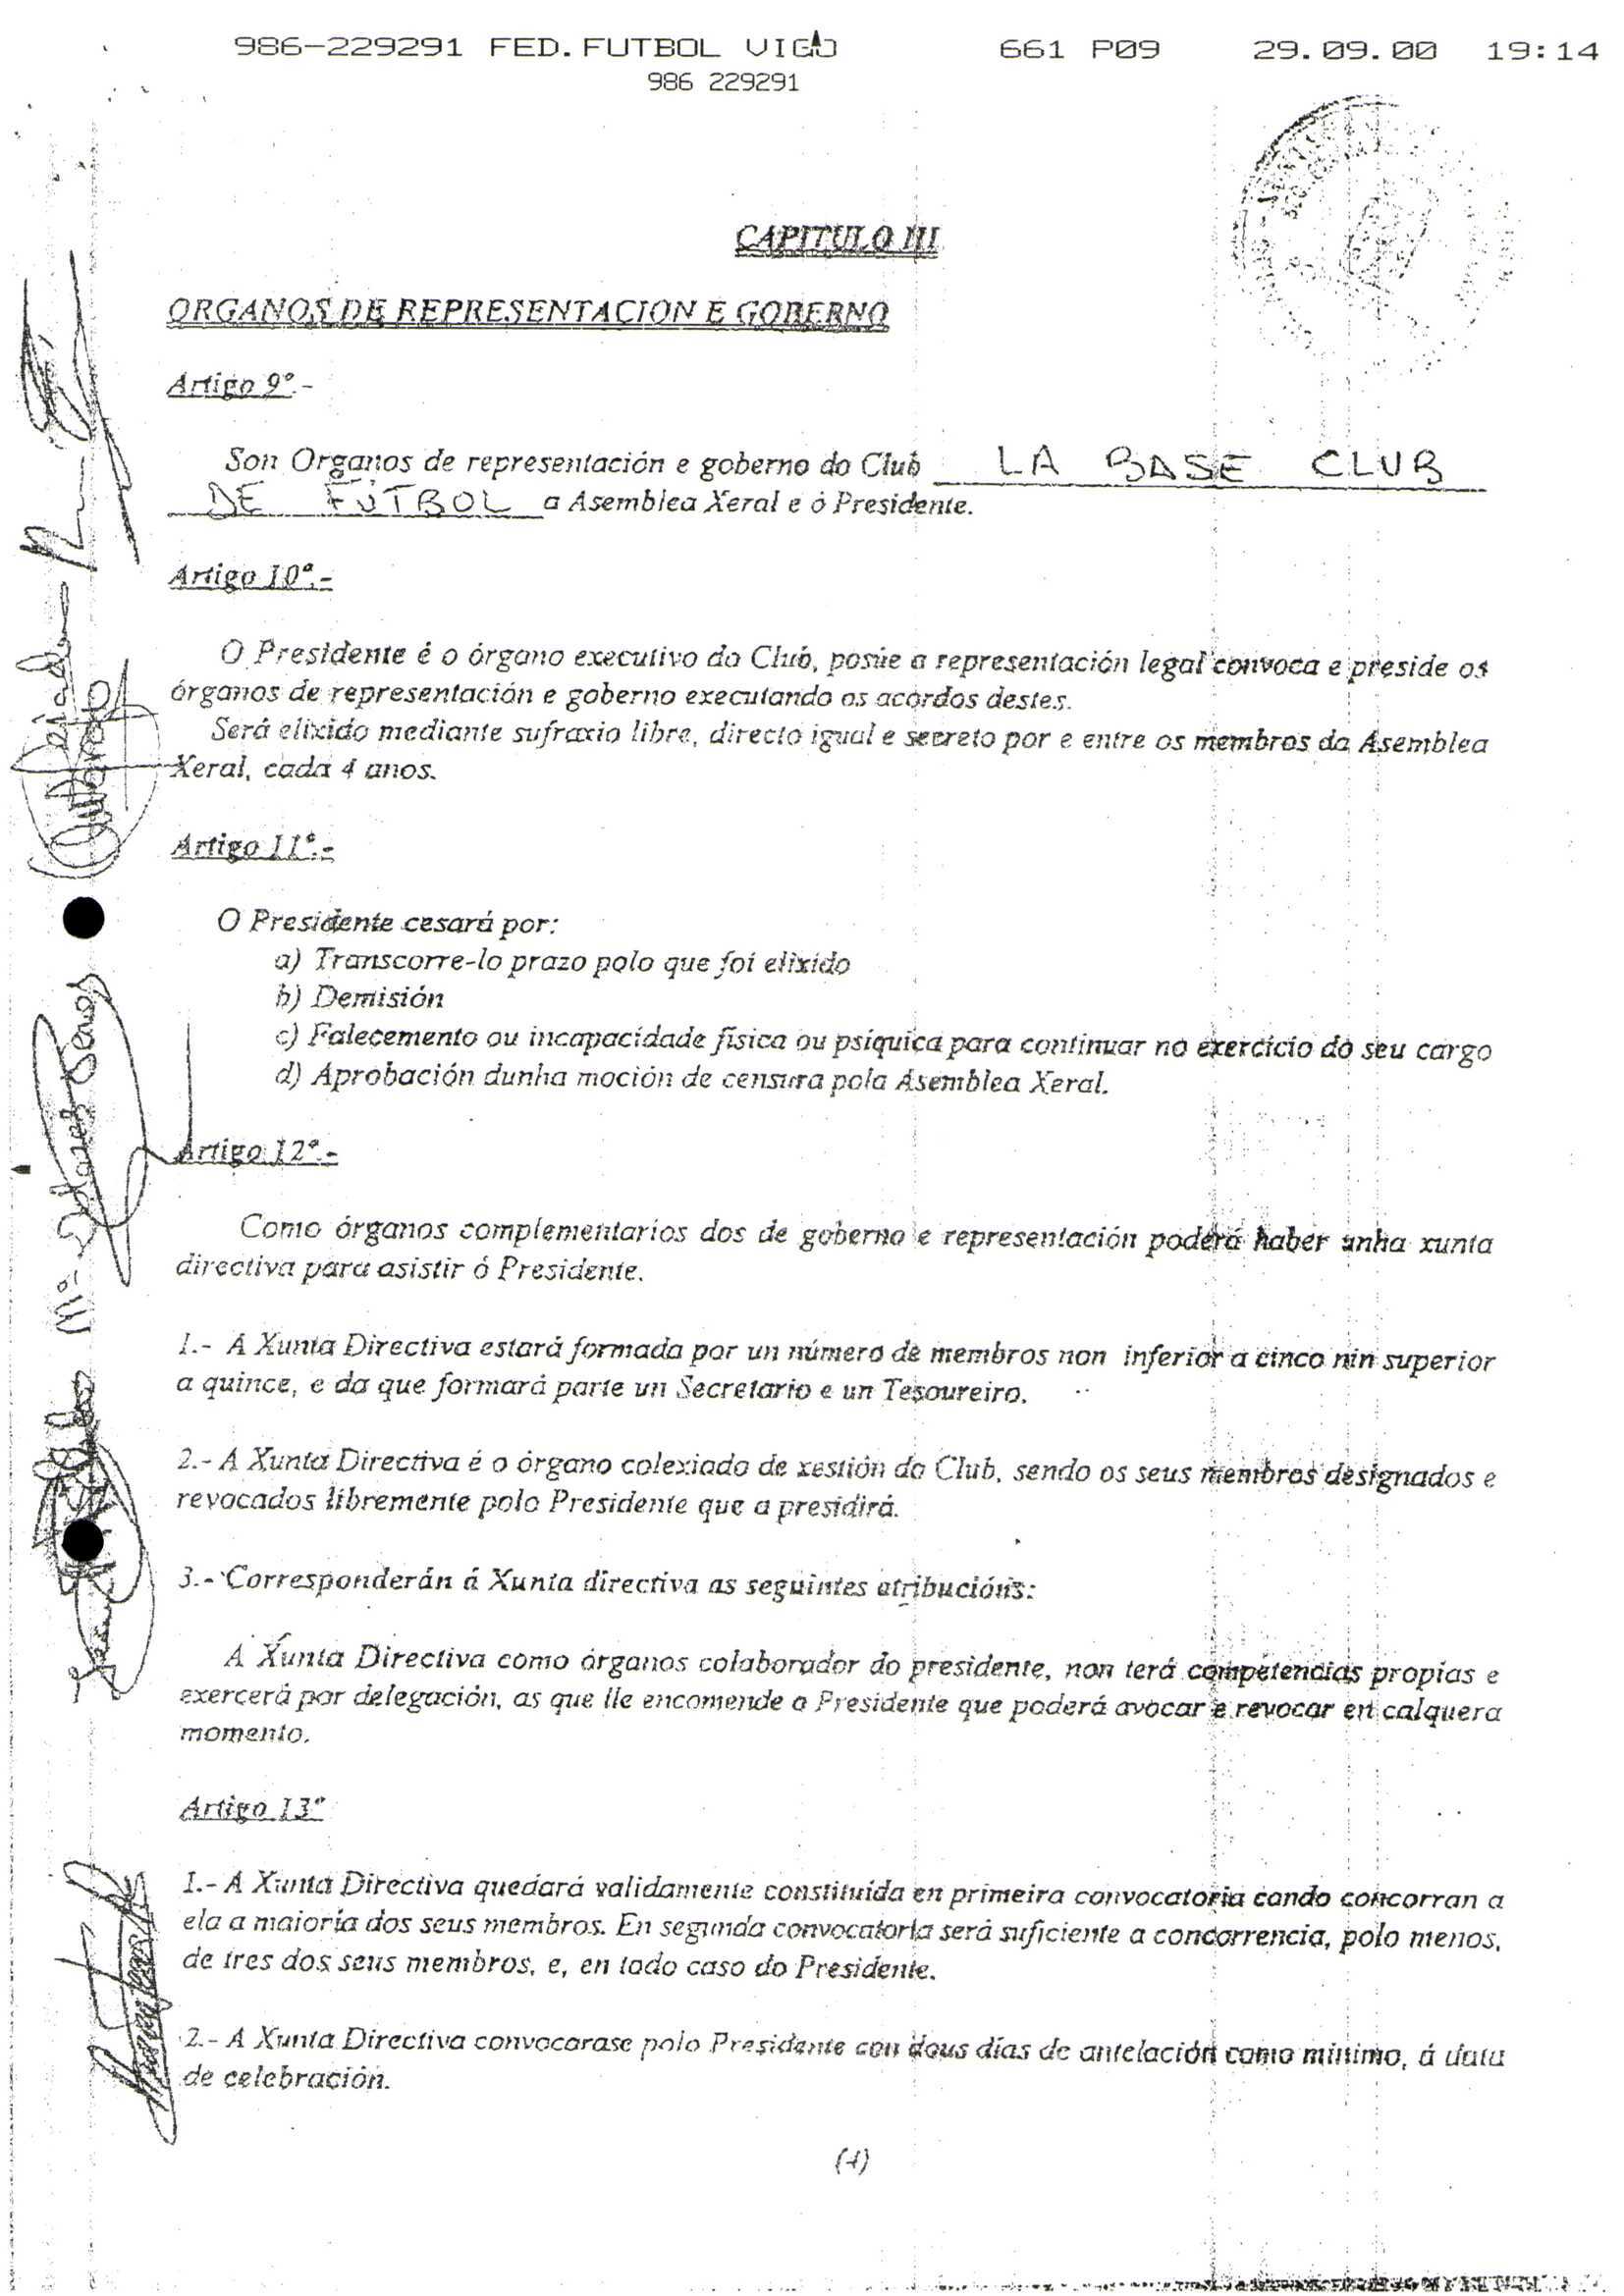 986-229291 FED.FUTBOL VIGO 661 P09 29.09.00 19:14
986 229291
CAPITULO III
ORGANOS DE REPRESENTACION E GOBERNO
Artigo 9º.-
Son Organos de representación e goberno do Club LA BASE CLUB
DE FÚTBOL a Asemblea Xeral e ó Presidente.
Artigo 10º.-
O Presidente é o órgano executivo do Club, posúe a representación legal convoca e preside os
órganos de representación e goberno executando os acordos destes.
Será elixido mediante sufraxio libre, directo igual e secreto por e entre os membros da Asemblea
Xeral, cada 4 anos.
Artigo 11º.-
O Presidente cesará por:
a) Transcorre-lo prazo polo que foi elixido
b) Demisión
c) Falecemento ou incapacidade física ou psíquica para continuar no exercicio do seu cargo
d) Aprobación dunha moción de censura pola Asemblea Xeral.
Artigo 12º.-
Como órganos complementarios dos de goberno e representación poderá haber unha xunta
directiva para asistir ó Presidente.
1.- A Xunta Directiva estará formada por un número de membros non inferior a cinco nin superior
a quince, e da que formará parte un Secretario e un Tesoureiro.
2.- A Xunta Directiva é o órgano colexiado de xestión do Club, sendo os seus membros designados e
revocados libremente polo Presidente que a presidirá.
3.- Corresponderán á Xunta directiva as seguintes atribucións:
A Xunta Directiva como órganos colaborador do presidente, non terá competencias propias e
exercerá por delegación, as que lle encomende o Presidente que poderá avocar e revocar en calquera
momento.
Artigo 13º
1.- A Xunta Directiva quedará validamente constituída en primeira convocatoria cando concorran a
ela a maioría dos seus membros. En segunda convocatoria será suficiente a concorrencia, polo menos,
de tres dos seus membros, e, en todo caso do Presidente.
2.- A Xunta Directiva convocarase polo Presidente con dous días de antelación como mínimo, á data
de celebración.
(4)